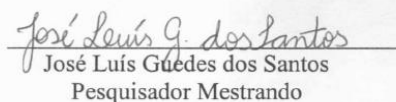 José Luís G. dos Santos
José Luís Guedes dos Santos
Pesquisador Mestrando